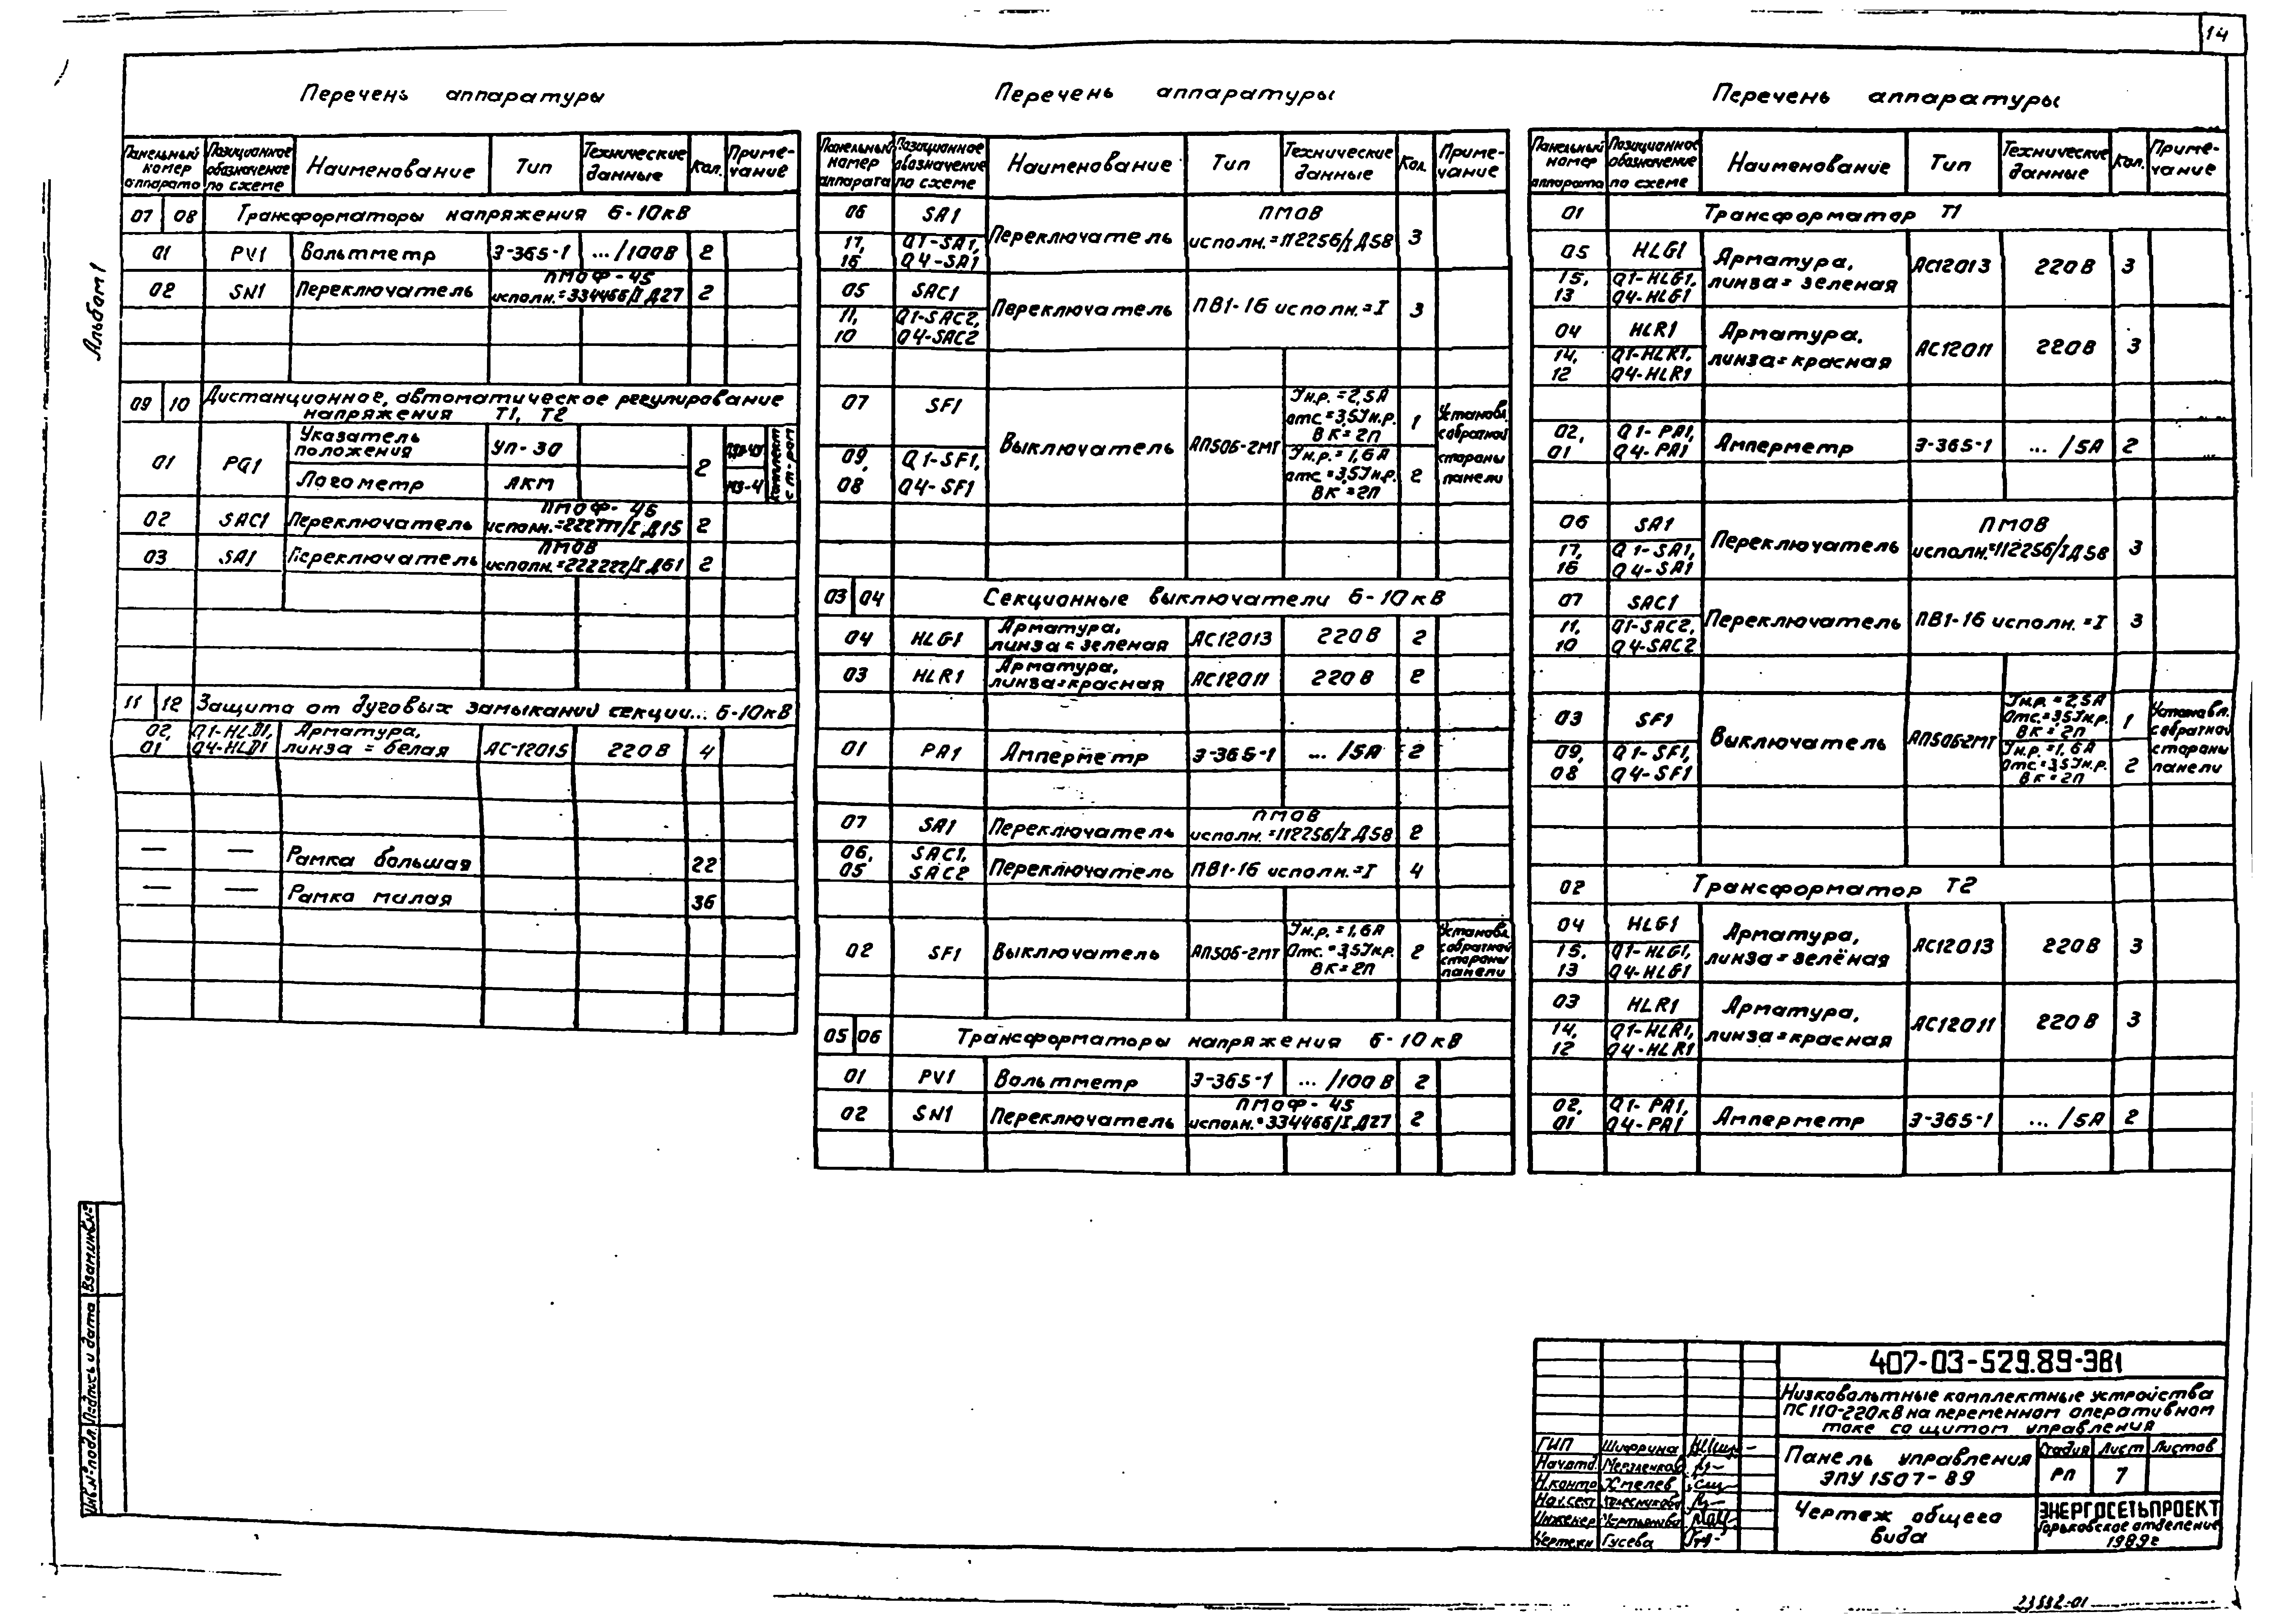 14
Альбом 1
Перечень аппаратуры
Панельный номер аппарата | Позиционное обозначение по схеме | Наименование | Тип | Технические данные | Кол. | Приме-чание
07 | 08 | Трансформаторы напряжения 6-10кВ
01 | PV1 | Вольтметр | Э-365-1 | .../100В | 2
02 | SN1 | Переключатель | ПМОФ-45 исполн.=334466/I Д27 | 2
09 | 10 | Дистанционное, автоматическое регулирование напряжения Т1, Т2
01 | PG1 | Указатель положения | УП-30 | 2
Логометр | ЛКМ
Комплект с т-ром
02 | SAC1 | Переключатель | ПМОФ-46 исполн.=222777/I Д15 | 2
03 | SA1 | Переключатель | ПМОВ исполн.=222222/I Д61 | 2
11 | 12 | Защита от дуговых замыканий секции... 6-10кВ
02, 01 | Q1-HLD1, Q4-HLD1 | Арматура, линза = белая | АС-12015 | 220В | 4
— | — | Рамка большая | 22
— | — | Рамка малая | 36
Перечень аппаратуры
Панельный номер аппарата | Позиционное обозначение по схеме | Наименование | Тип | Технические данные | Кол. | Приме-чание
06 | SA1 | Переключатель | ПМОВ исполн.=112256/I Д58 | 3
17, 16 | Q1-SA1, Q4-SA1
05 | SAC1 | Переключатель | ПВ1-16 исполн.=I | 3
11, 10 | Q1-SAC2, Q4-SAC2
07 | SF1 | Выключатель | АП50Б-2МТ | Iн.р.=2,5А отс.=3,5Iн.р. ВК=2П | 1 | Установл. с обратной стороны панели
09, 08 | Q1-SF1, Q4-SF1 | Iн.р.=1,6А отс.=3,5Iн.р. ВК=2П | 2
03 | 04 | Секционные выключатели 6-10кВ
04 | HLG1 | Арматура, линза=зеленая | АС12013 | 220В | 2
03 | HLR1 | Арматура, линза=красная | АС12011 | 220В | 2
01 | PA1 | Амперметр | Э-365-1 | .../5А | 2
07 | SA1 | Переключатель | ПМОВ исполн.=112256/I Д58 | 2
06, 05 | SAC1, SAC2 | Переключатель | ПВ1-16 исполн.=I | 4
02 | SF1 | Выключатель | АП50Б-2МТ | Iн.р.=1,6А Отс.=3,5Iн.р. ВК=2П | 2 | Установл. с обратной стороны панели
05 | 06 | Трансформаторы напряжения 6-10кВ
01 | PV1 | Вольтметр | Э-365-1 | .../100В | 2
02 | SN1 | Переключатель | ПМОФ-45 исполн.=334466/I Д27 | 2
Перечень аппаратуры
Панельный номер аппарата | Позиционное обозначение по схеме | Наименование | Тип | Технические данные | Кол. | Приме-чание
01 | Трансформатор Т1
05 | HLG1 | Арматура, линза=зеленая | АС12013 | 220В | 3
15, 13 | Q1-HLG1, Q4-HLG1
04 | HLR1 | Арматура, линза=красная | АС12011 | 220В | 3
14, 12 | Q1-HLR1, Q4-HLR1
02, 01 | Q1-PA1, Q4-PA1 | Амперметр | Э-365-1 | .../5А | 2
06 | SA1 | Переключатель | ПМОВ исполн.=112256/I Д58 | 3
17, 16 | Q1-SA1, Q4-SA1
07 | SAC1 | Переключатель | ПВ1-16 исполн.=I | 3
11, 10 | Q1-SAC2, Q4-SAC2
03 | SF1 | Выключатель | АП50Б-2МТ | Iн.р.=2,5А Отс.=3,5Iн.р. ВК=2П | 1 | Установл. с обратной стороны панели
09, 08 | Q1-SF1, Q4-SF1 | Iн.р.=1,6А Отс.=3,5Iн.р. ВК=2П | 2
02 | Трансформатор Т2
04 | HLG1 | Арматура, линза=зелёная | АС12013 | 220В | 3
15, 13 | Q1-HLG1, Q4-HLG1
03 | HLR1 | Арматура, линза=красная | АС12011 | 220В | 3
14, 12 | Q1-HLR1, Q4-HLR1
02, 01 | Q1-PA1, Q4-PA1 | Амперметр | Э-365-1 | .../5А | 2
Инв.№ подл. | Подпись и дата | Взам.инв.№
407-03-529.89-ЭВ1
Низковольтные комплектные устройства
ПС 110-220кВ на переменном оперативном
токе со щитом управления
ГИП Шифрина
Нач.отд.
Н.контр Хмелев
Нач.сект
Инженер
Чертежн Гусева
Панель управления
ЭПУ 1507-89
Стадия | Лист | Листов
РП | 7
Чертеж общего
вида
ЭНЕРГОСЕТЬПРОЕКТ
Горьковское отделение
1989г
23532-01